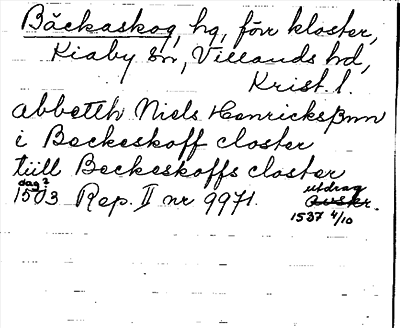 Bäckaskog, hg, förr kloster,
Kiaby sn, Villands hd,
Krist. l.
abbetth Niels Henricksßnn
i Beckeskoff closter
tüll Beckeskoffs closter
dag?
1503 Rep. II nr 9971. utdrag
avskr.
1537 4/10